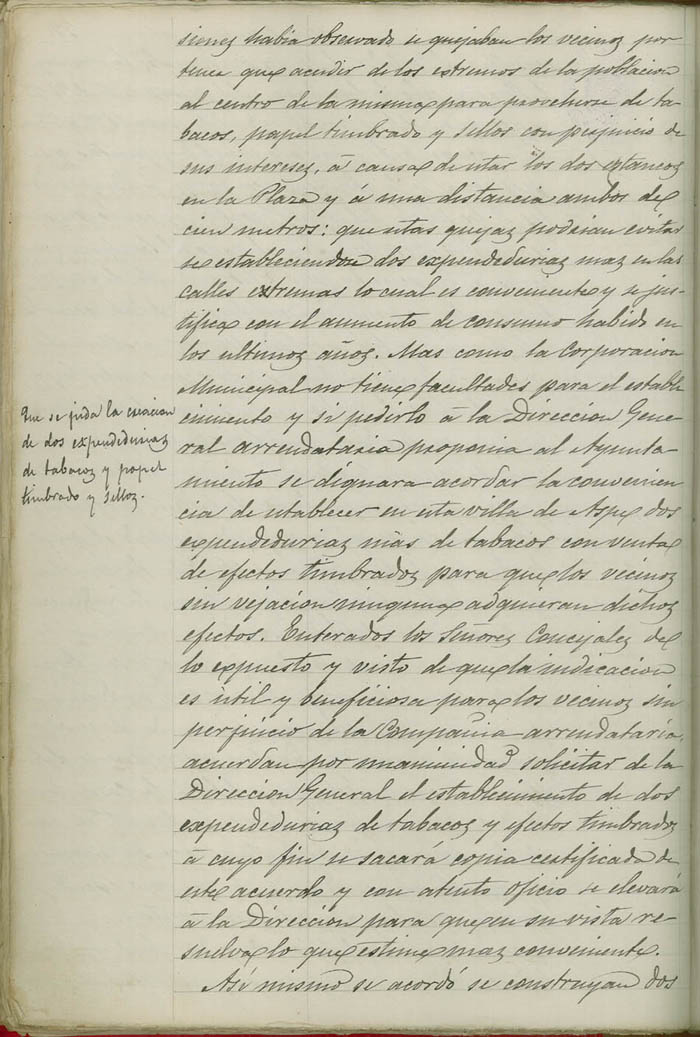 sienes había observado se quejaban los vecinos por
tener que acudir de los estremos de la poblacion
al centro de la misma para proveherse de ta-
bacos, papel timbrado y sellos con perjuicio de
sus intereses, á causa de estar los dos estancos
en la Plaza y á una distancia ambos de
cien metros: que estas quejas podrian evitar
se estableciendo dos expendedurias mas en las
calles extremas lo cual es conveniente y se jus-
tifica con el aumento de consumo habido en
los ultimos años. Mas como la Corporacion
Municipal no tiene facultades para el estable
cimiento y si pedirlo á la Direccion Gene-
ral arrendataria proponia al Ayunta-
miento se dignara acordar la convenien
cia de establecer en esta villa de Aspe dos
expendedurias más de tabacos con venta
de efectos timbrados para que los vecinos
sin vejacion ninguna adquieran dichos
efectos. Enterados los Señores Concejales de
lo expuesto y visto de que la indicacion
es útil y beneficiosa para los vecinos sin
perjuicio de la Compañia arrendataria,
acuerdan por unanimidad solicitar de la
Direccion General el establecimiento de dos
expendedurias de tabacos y efectos timbrados
á cuyo fin se sacará copia certificada de
este acuerdo y con atento oficio se elevará
á la Direccion para que en su vista re-
suelva lo que estime mas conveniente.
Asi mismo se acordó se construyan dos
Que se pida la creacion
de dos expendedurias
de tabacos y papel
timbrado y sellos.